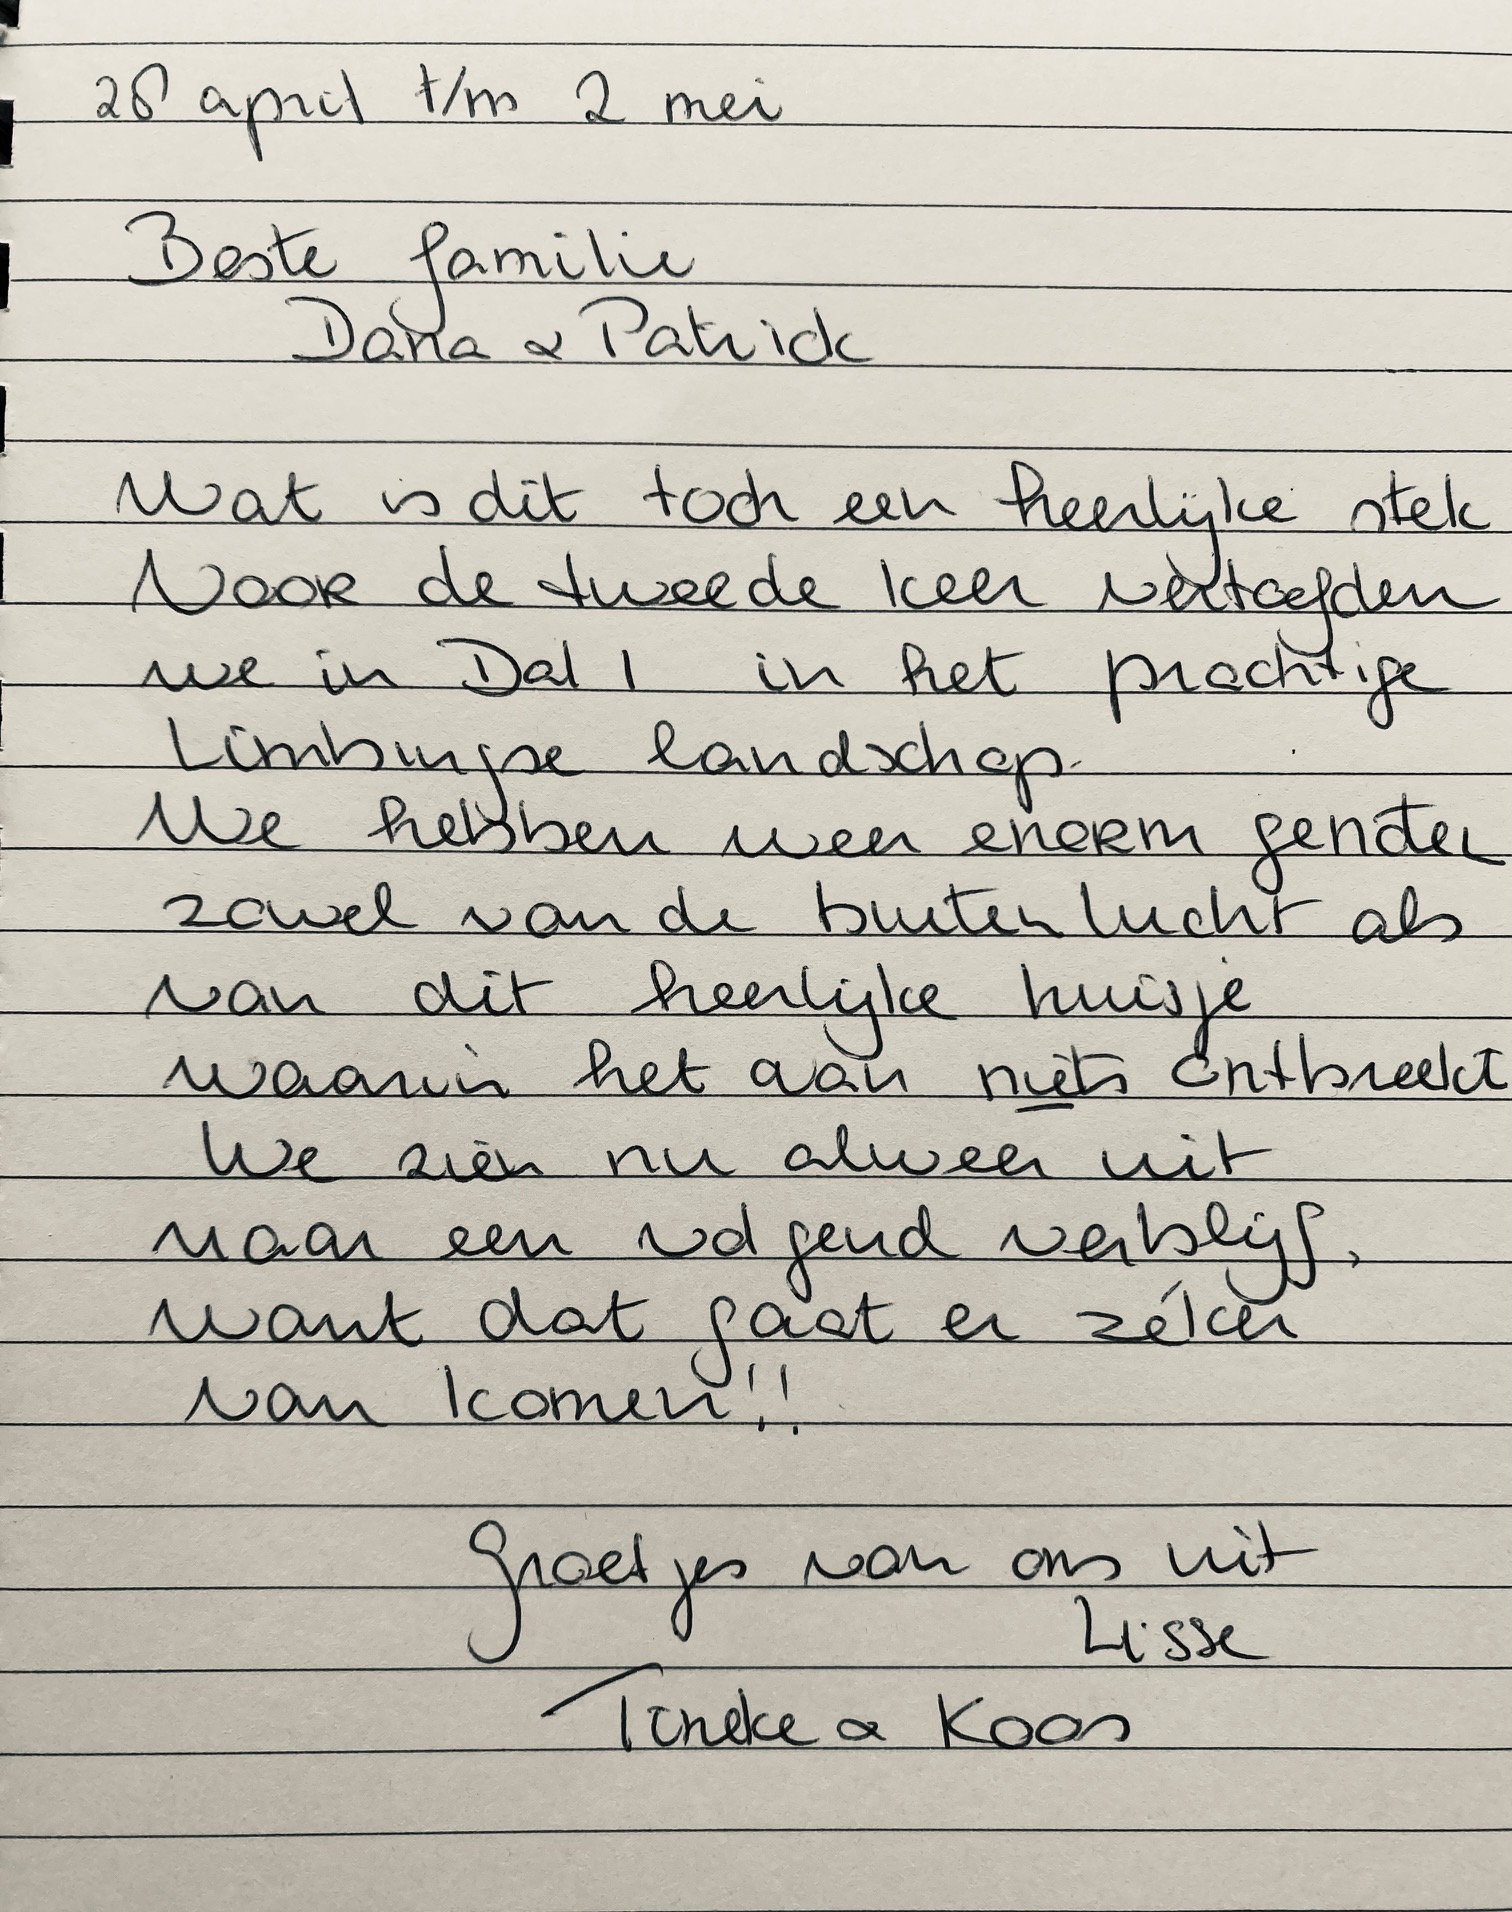 28 april t/m 2 mei
Beste familie
Dana & Patrick
Wat is dit toch een heerlijke stek
Voor de tweede keer vertoefden
we in Dal 1 in het prachtige
Limburgse landschap.
We hebben weer enorm genoten
zowel van de buitenlucht als
van dit heerlijke huisje
waarin het aan niets ontbreekt
We zien nu alweer uit
naar een volgend verblijf,
want dat gaat er zéker
van komen!!
Groetjes van ons uit
Lisse
Tineke & Koos